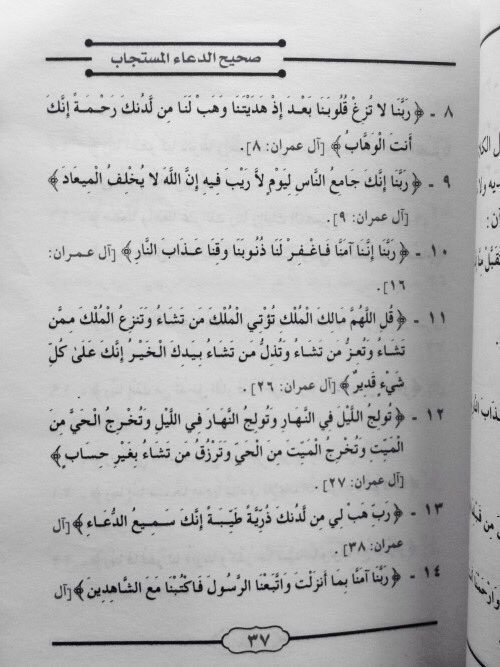 صحيح الدعاء المستجاب
٨ - ﴿ رَبَّنَا لا تُزِغْ قُلُوبَنَا بَعْدَ إِذْ هَدَيْتَنَا وَهَبْ لَنَا مِن لَّدُنكَ رَحْمَةً إِنَّكَ
أَنتَ الْوَهَّابُ ﴾ [آل عمران: ٨].
٩ - ﴿ رَبَّنَا إِنَّكَ جَامِعُ النَّاسِ لِيَوْمٍ لاَّ رَيْبَ فِيهِ إِنَّ اللَّهَ لا يُخْلِفُ الْمِيعَادَ ﴾
[آل عمران: ٩].
١٠ - ﴿ رَبَّنَا إِنَّنَا آمَنَّا فَاغْفِرْ لَنَا ذُنُوبَنَا وَقِنَا عَذَابَ النَّارِ ﴾ [آل عمران:
١٦].
١١ - ﴿ قُلِ اللَّهُمَّ مَالِكَ الْمُلْكِ تُؤْتِي الْمُلْكَ مَن تَشَاءُ وَتَنزِعُ الْمُلْكَ مِمَّن
تَشَاءُ وَتُعِزُّ مَن تَشَاءُ وَتُذِلُّ مَن تَشَاءُ بِيَدِكَ الْخَيْرُ إِنَّكَ عَلَىٰ كُلِّ
شَيْءٍ قَدِيرٌ ﴾ [آل عمران: ٢٦].
١٢ - ﴿ تُولِجُ اللَّيْلَ فِي النَّهَارِ وَتُولِجُ النَّهَارَ فِي اللَّيْلِ وَتُخْرِجُ الْحَيَّ مِنَ
الْمَيِّتِ وَتُخْرِجُ الْمَيِّتَ مِنَ الْحَيِّ وَتَرْزُقُ مَن تَشَاءُ بِغَيْرِ حِسَابٍ ﴾
[آل عمران: ٢٧].
١٣ - ﴿ رَبِّ هَبْ لِي مِن لَّدُنكَ ذُرِّيَّةً طَيِّبَةً إِنَّكَ سَمِيعُ الدُّعَاءِ ﴾ [آل
عمران: ٣٨].
١٤ - ﴿ رَبَّنَا آمَنَّا بِمَا أَنزَلْتَ وَاتَّبَعْنَا الرَّسُولَ فَاكْتُبْنَا مَعَ الشَّاهِدِينَ ﴾ [آل
٣٧